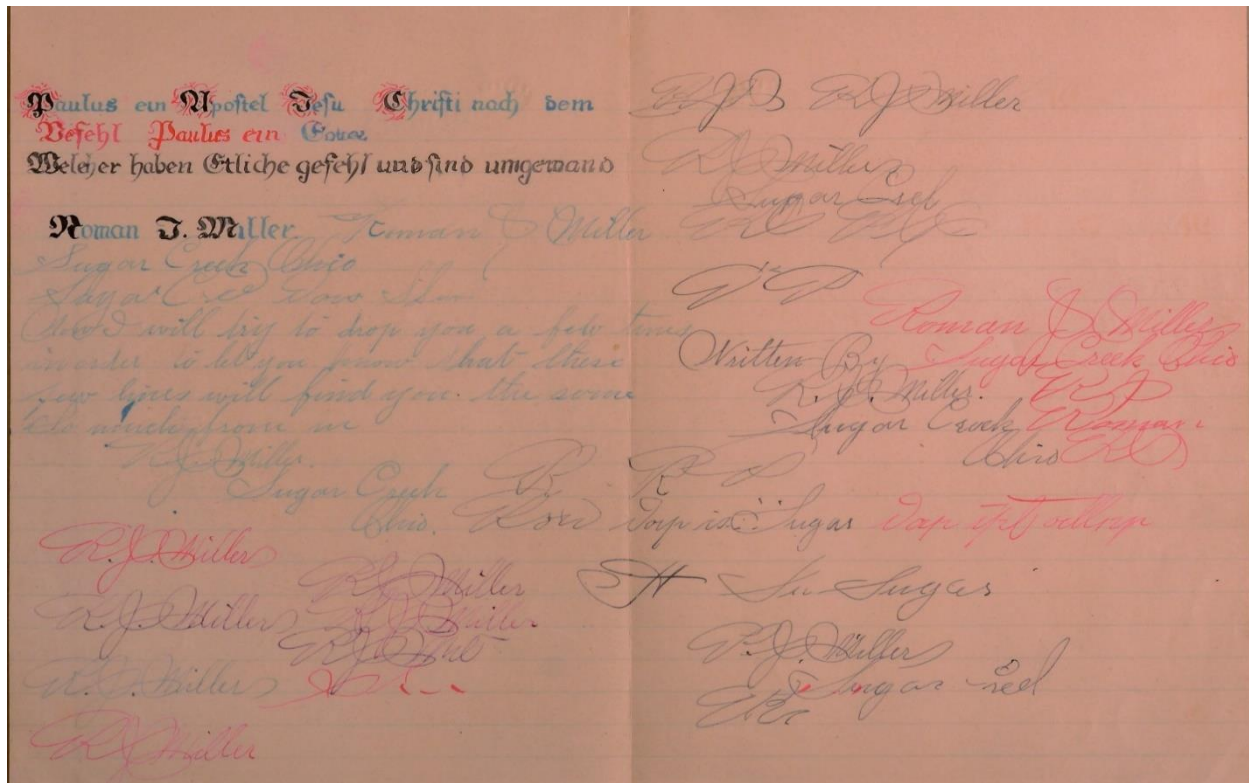 Paulus ein Apostel Jesu Christi nach dem
Befehl Paulus ein
Welcher haben Etliche gefehl und sind umgewand
Roman J. Miller. Roman J Miller
Sugar Creek Ohio
Sugar Cree
will try to drop you a few lines
inorder to let you know that these
few lines will find you the same
from me
R. J. Miller.
Sugar Creek
Ohio.
R. J. Miller
R J Miller
R. J. Miller
R J Miller
R J Mil
R. J. Miller
R J Miller
R J B R J Miller
R J Miller
Sugar
Roman J Miller
Sugar Creek Ohio
Written By
R. J. Miller. R J
Sugar Creek Roman
Ohio
R R
is Sugar
H Su Sugar
R. J. Miller
Sugar